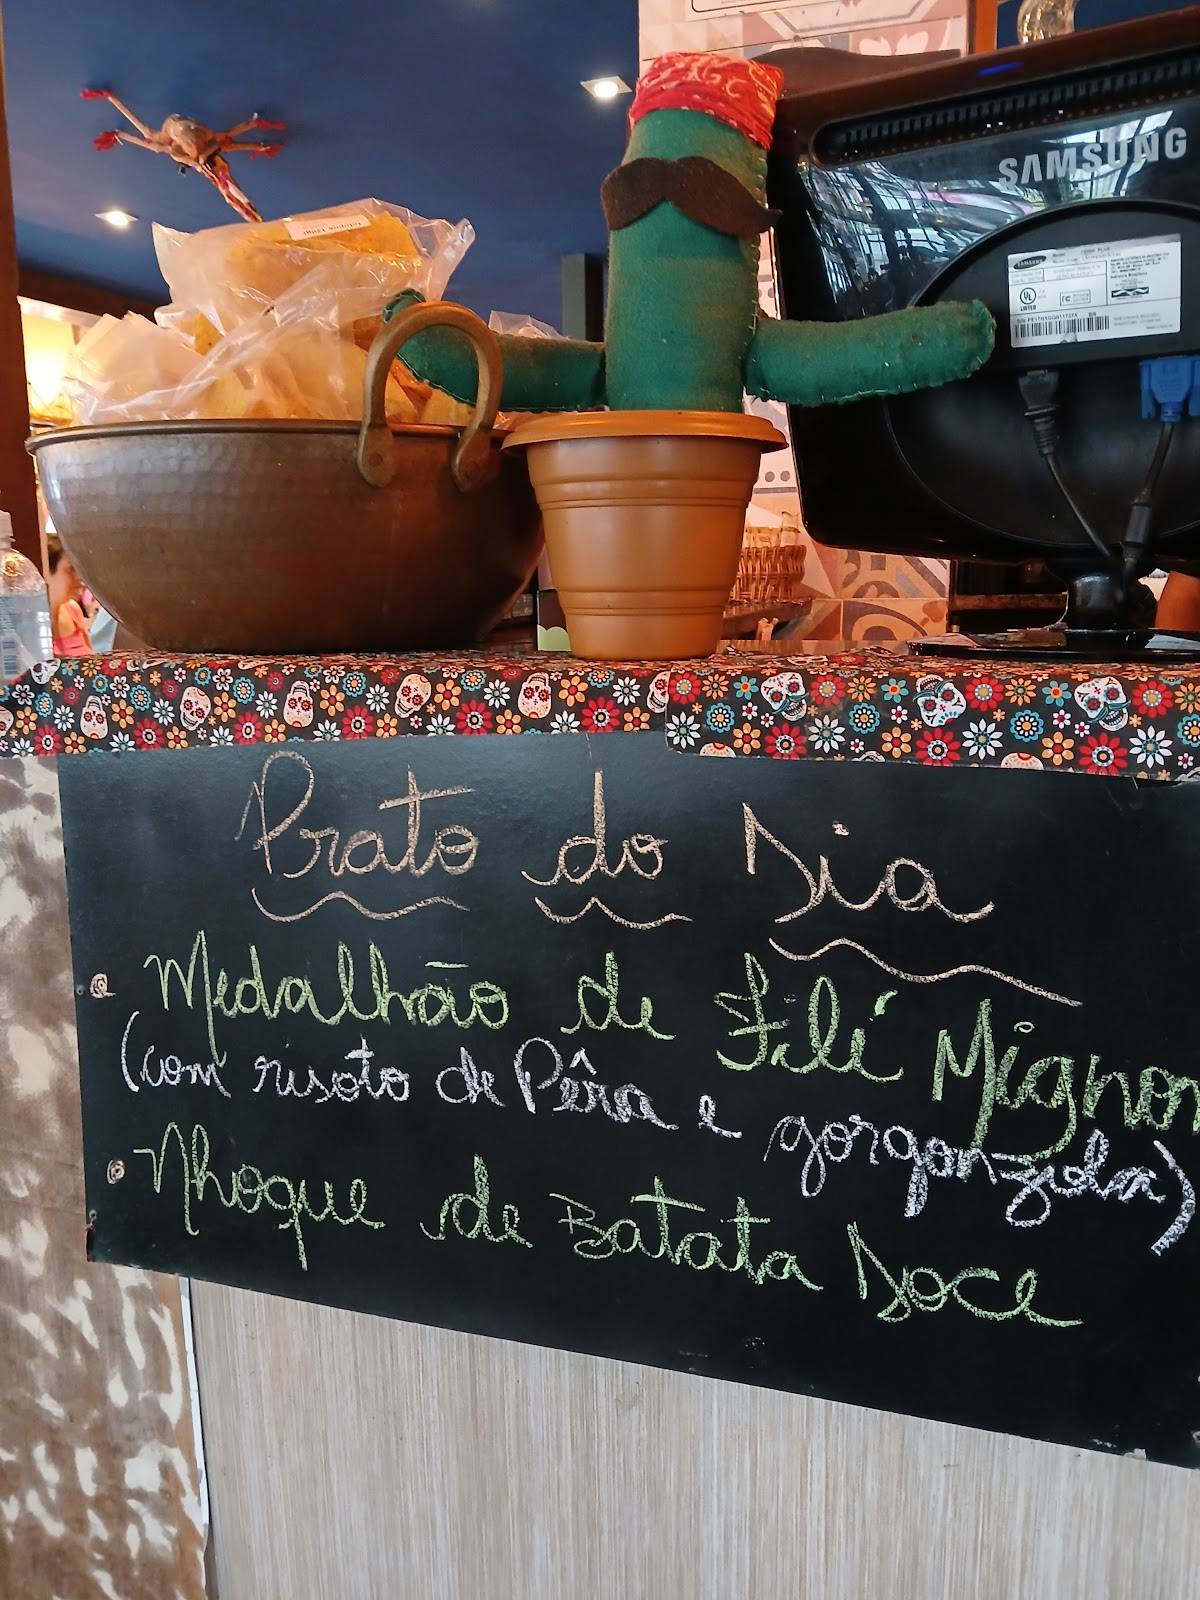 SAMSUNG
SAMSUNG
UL
LISTED
FC
Prato do Dia
Medalhão de Filé Mignon
(com risoto de Pêra e gorgonzola)
Nhoque de Batata Doce